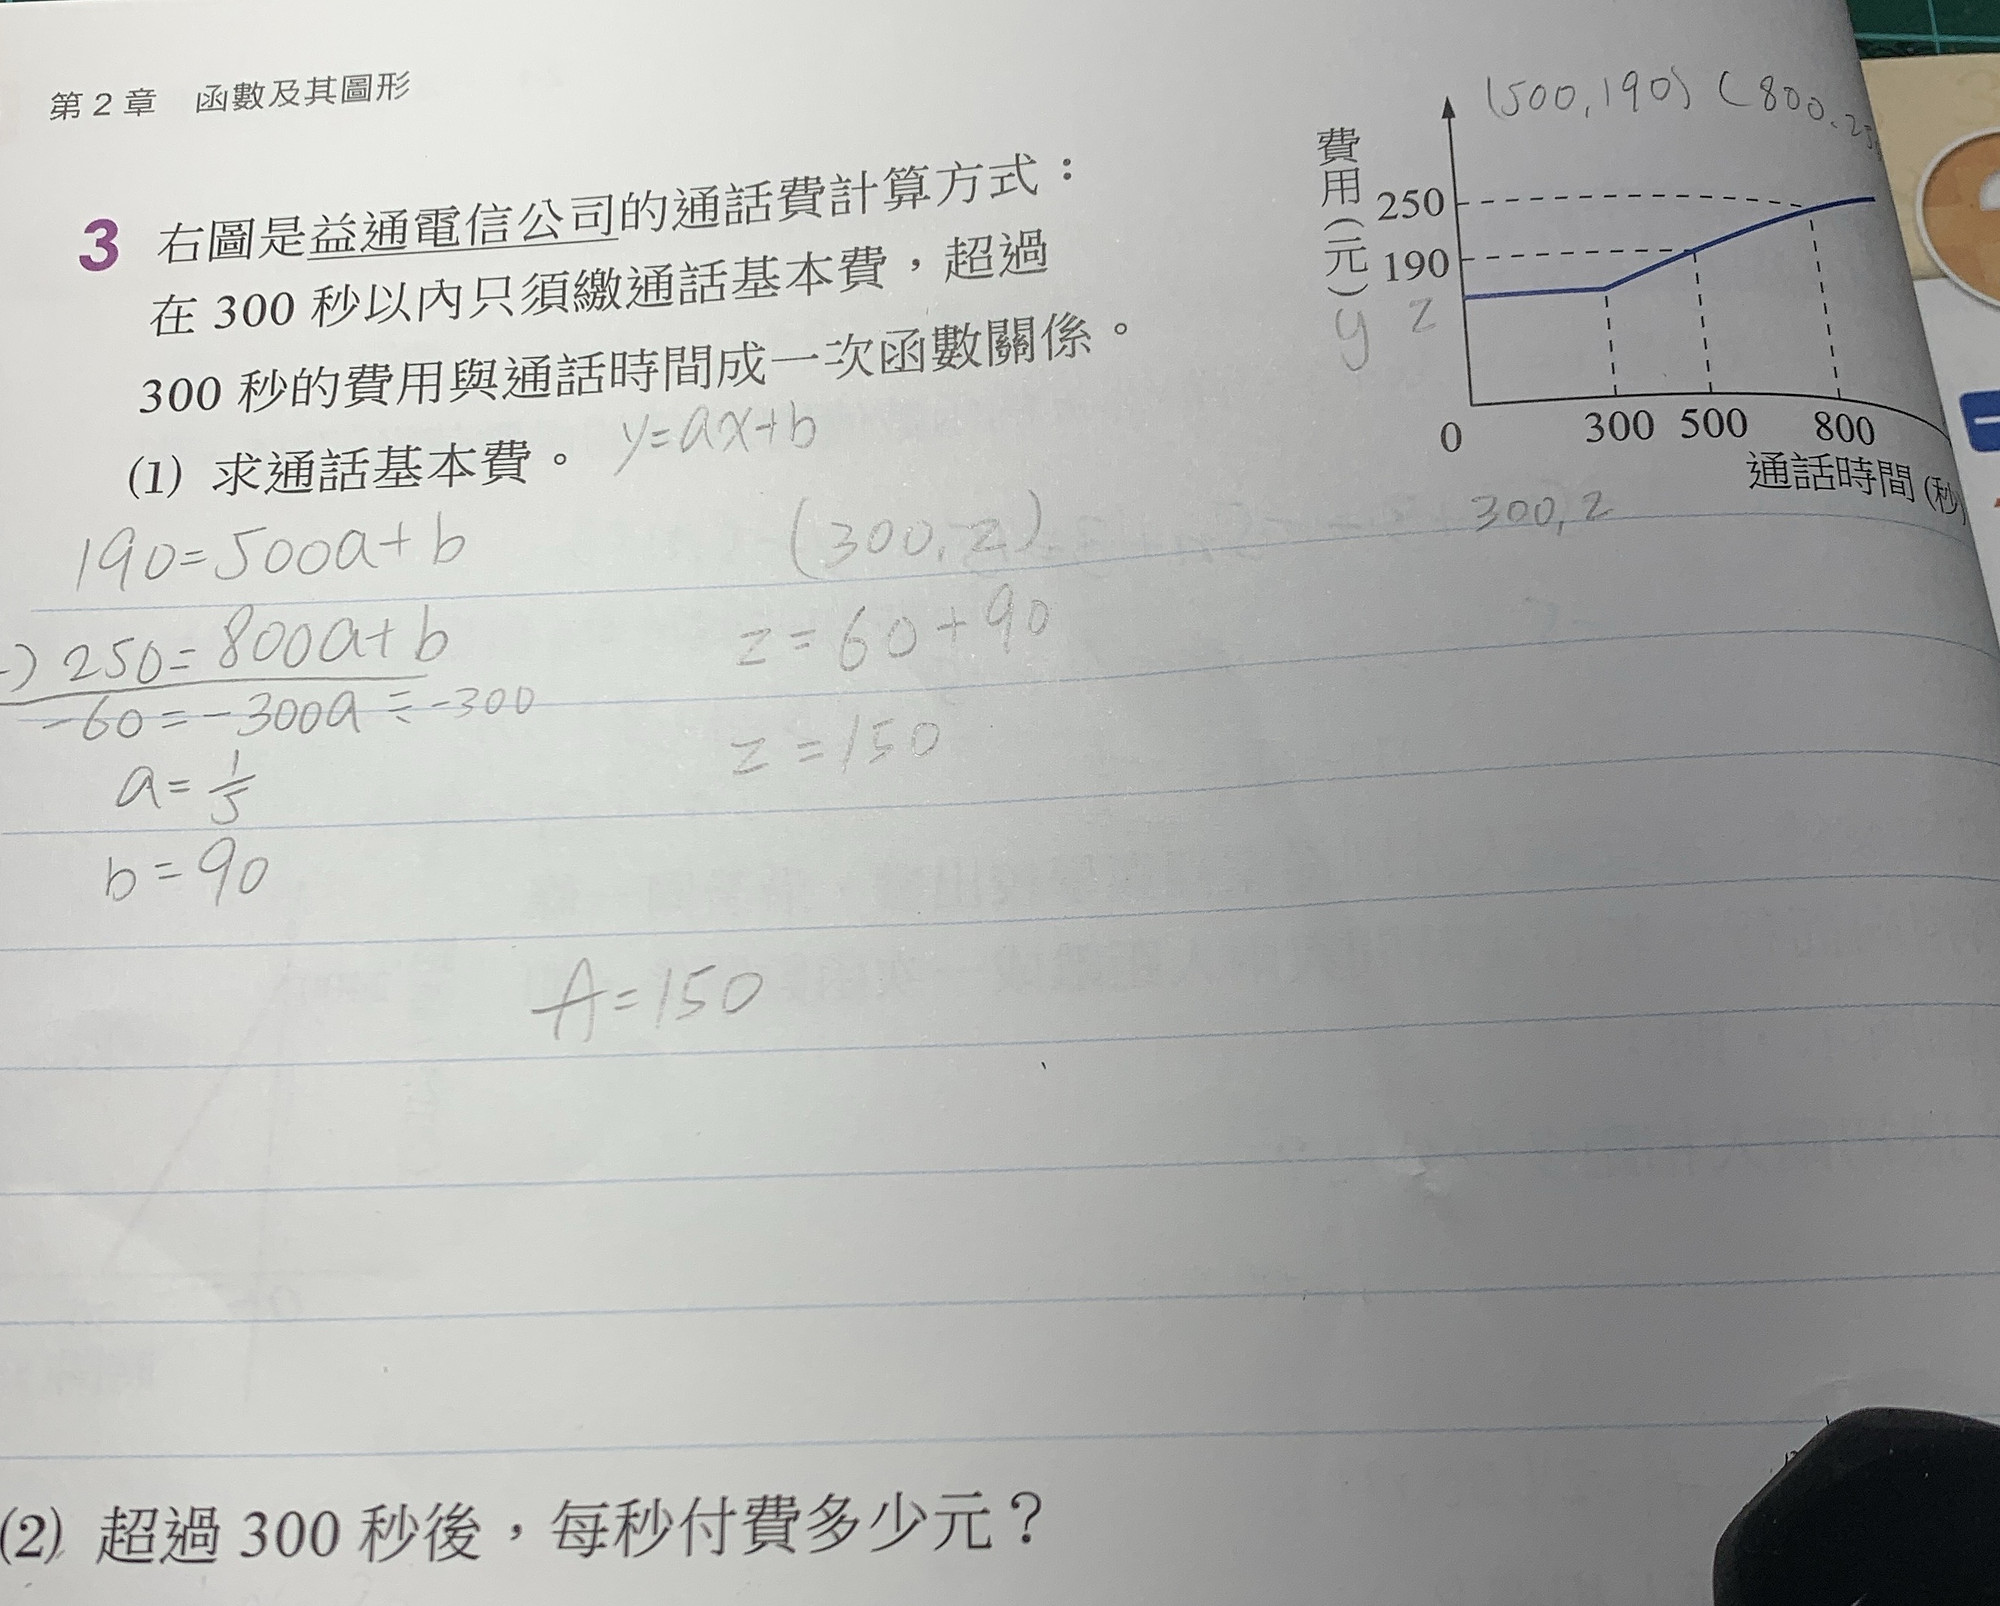 第 2 章 函數及其圖形
3 右圖是益通電信公司的通話費計算方式：
在 300 秒以內只須繳通話基本費，超過
300 秒的費用與通話時間成一次函數關係。
(1) 求通話基本費。 y=ax+b
190=500a+b
-) 250=800a+b
-60=-300a ÷-300
a=1/5
b=90
(300,z)
z=60+90
z=150
A=150
(500,190) (800,25
費用(元)
y z
250
190
0 300 500 800
通話時間(秒)
300,z
(2) 超過 300 秒後，每秒付費多少元？